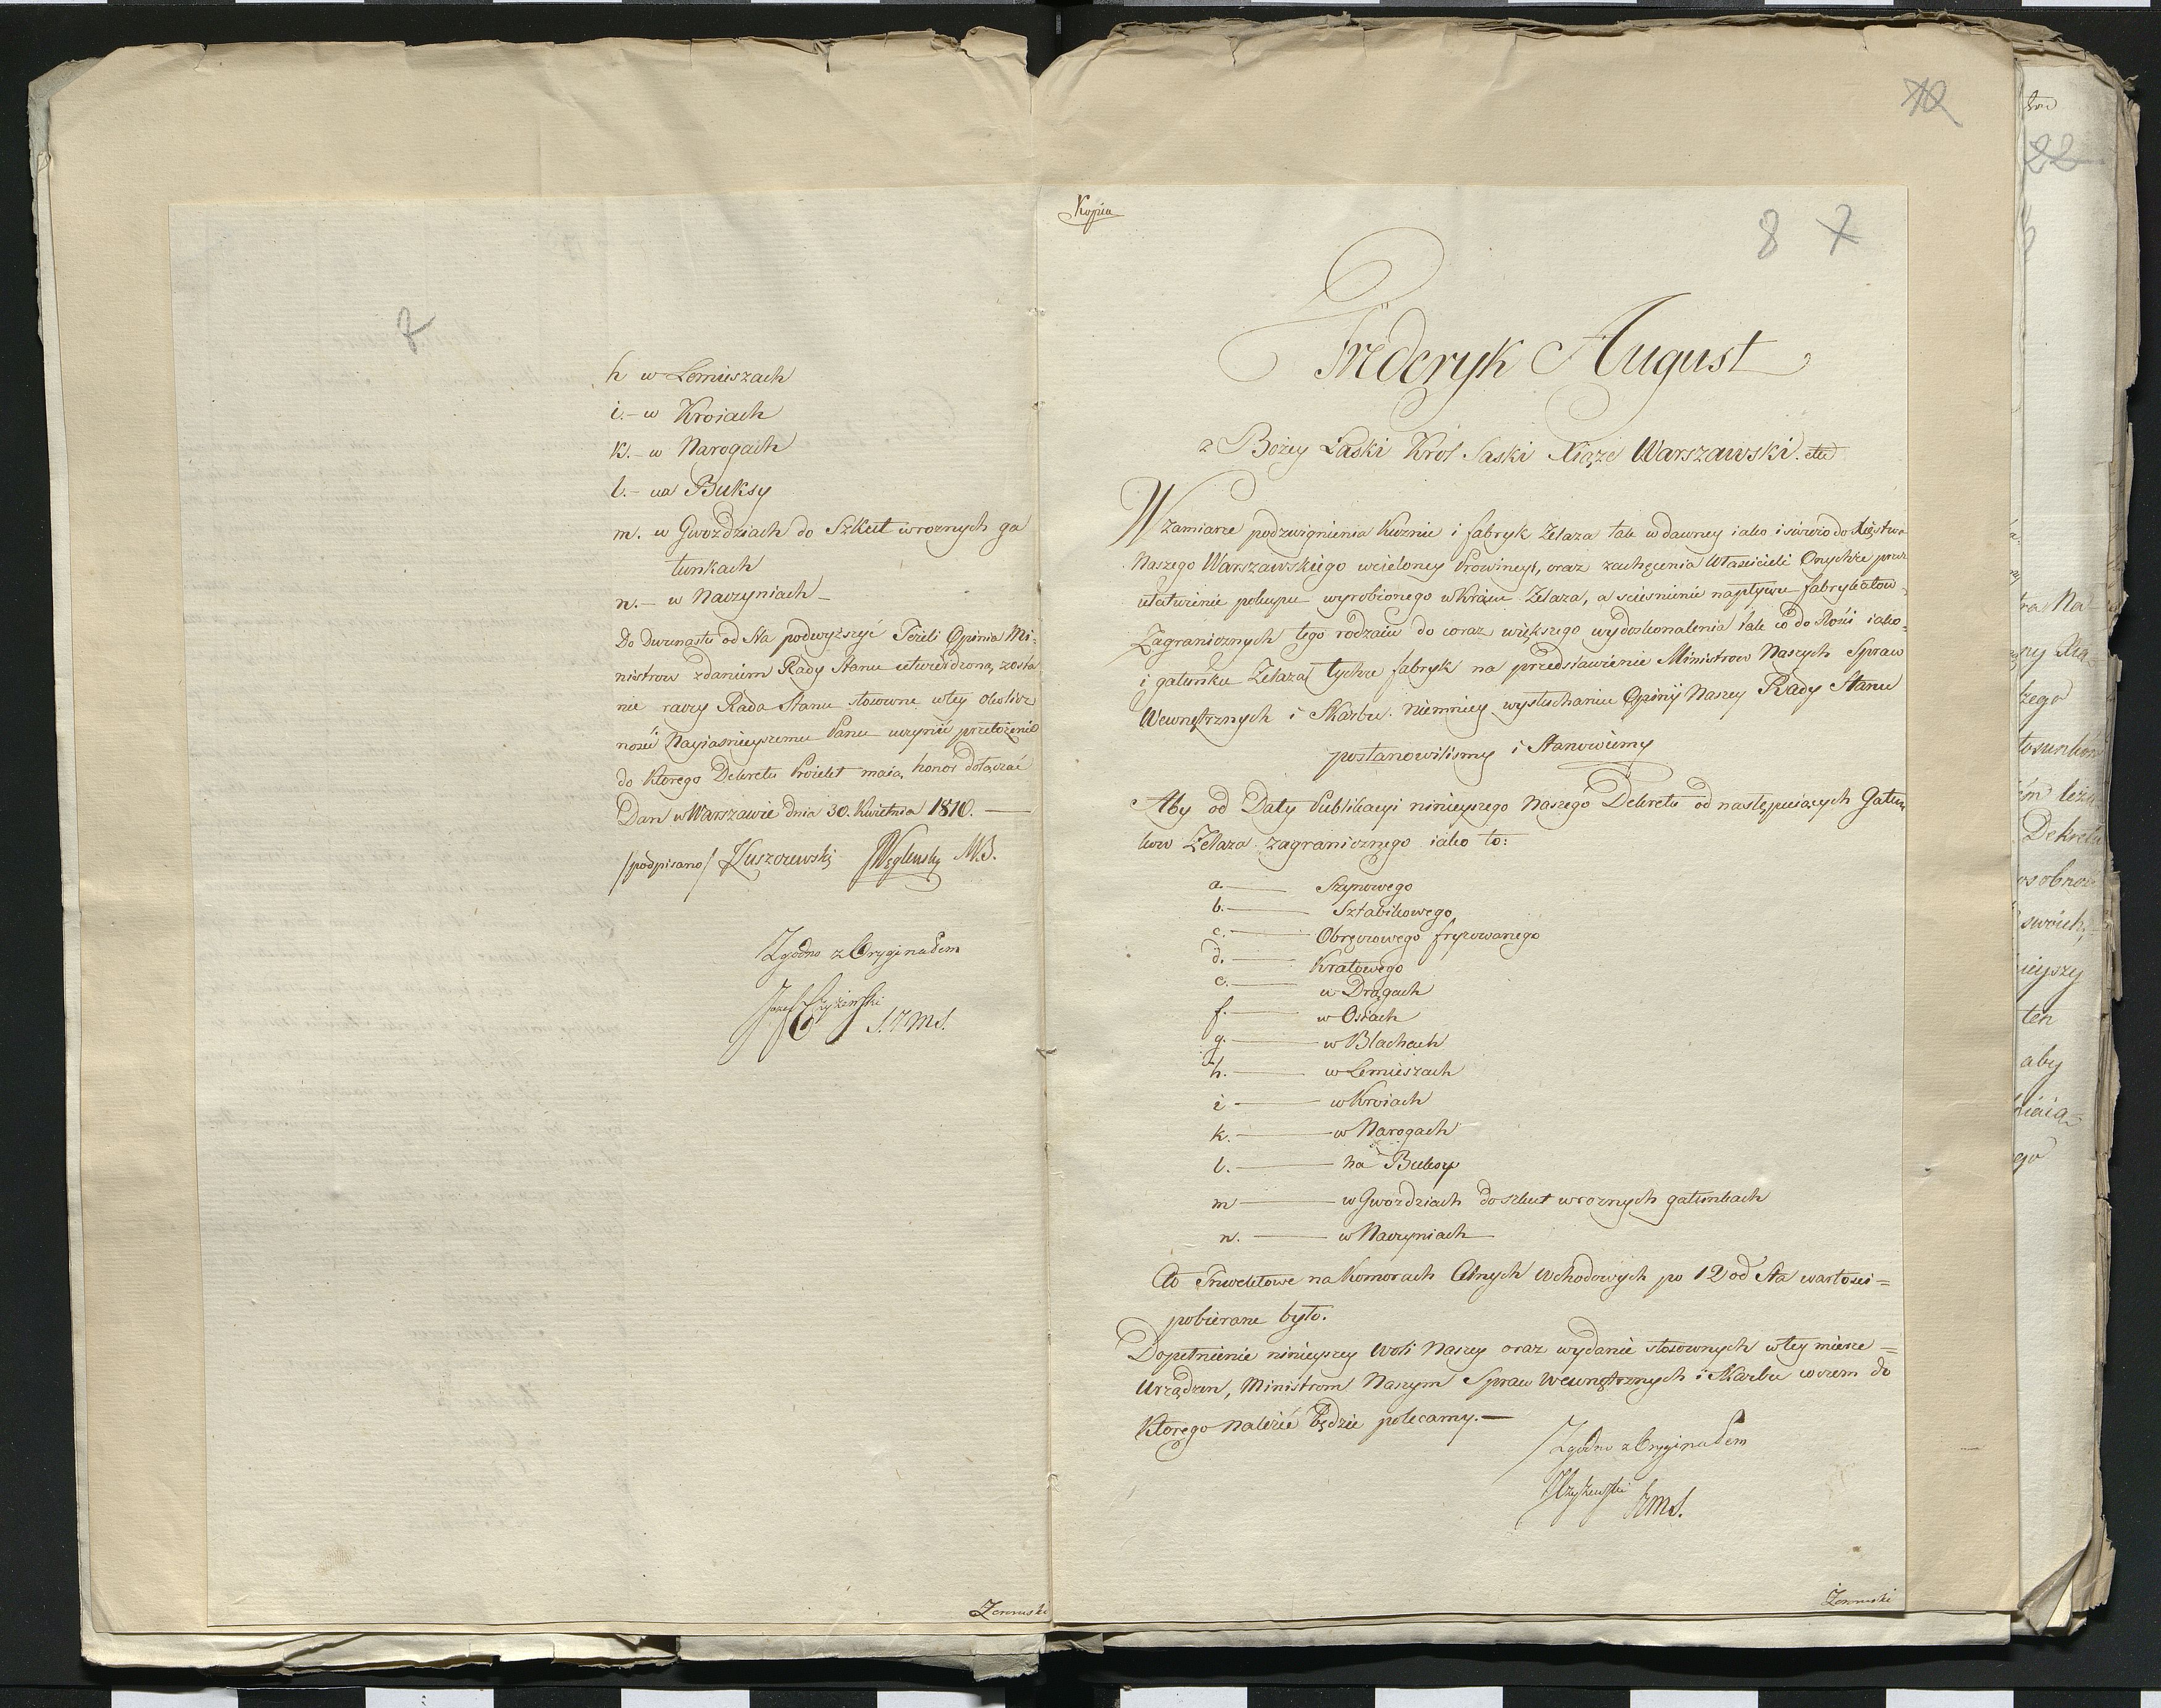 7
h w Lemieszach
i. – w Kroiach
k. – w Narogach
l. – na Buksy
m. w Gwozdziach do Szkut w roznych ga
tunkach
n. – w Naczyniach –
Do dwunastu od Sta podwyższyć Jeżeli Opinia Mi-
nistrow zdaniem Rady Stanu utwierdzoną zosta
nie raczy Rada Stanu stosowne w tey okolicz
ności Nayiasnieyszemu Panu uczynić przełożenie
do ktorego Dekretu Proiekt maią honor dołączać
Dan w Warszawie dnia 30. Kwietnia 1810. —
/podpisano/ Łuszczewski Węgleński M.S.
Zgodno z Oryginałem
Jozef
Zerowski
12
Kopia
8 7
Fryderyk August
z Bożey Łaski Krol Saski Xiąże Warszawski. etc
W zamiarze podzwignienia Kuznic i fabryk Żelaza tak w dawney iako i swieżo do Xięstwa
Naszego Warszawskiego wcieloney Prowincyi, oraz zachęcenia Właścicieli Onychże przez
ułatwienie pokupu wyrobionego w Kraiu Żelaza, a scieśnienie napływu fabrykatow
Zagranicznych tego rodzaiu do coraz większego wydoskonalenia tak co do Ilości iako-
i gatunku Żelaza tychże fabryk na przedstawienie Ministrow Naszych Spraw
Wewnętrznych i Skarbu. niemniey wysłuchaniu Opinij Naszey Rady Stanu
postanowilismy i Stanowiemy
Aby od Daty Publikacyi ninieyszego Naszego Dekretu od następuiących Gatun
kow Żelaza zagranicznego iako to:
a. — Szynowego
b. — Sztabikowego
c. — Obręczowego fryzowanego
d. — Kratowego
e. — w Drągach
f. — w Osiach
g. — w Blachach
h. — w Lemieszach
i — w Kroiach
k. — w Narogach
l. — na Buksy
m — w Gwozdziach do szkut w roznych gatunkach
n. — w Naczyniach —
Cło Inwektowe na Komorach Celnych Wchodowych po 12 od Sta wartości =
pobierane było.
Dopełnienie ninieyszey Woli Naszey oraz wydanie stosownych w tey mierze =
Urządzen, Ministrom Naszym Spraw Wewnętrznych i Skarbu w czem do
Ktorego należeć będzie polecamy. —
Zgodno z Oryginałem
Zerowski
22